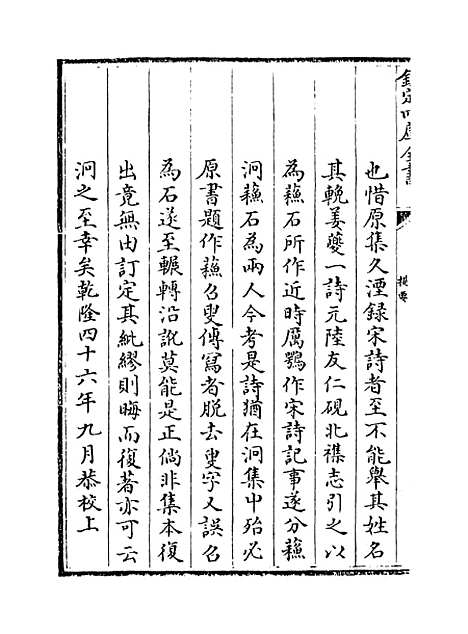 欽定四庫全書
提要
也惜原集久湮録宋詩者至不能舉其姓名
其輓姜夔一詩元陸友仁硯北襍志引之以
為蘓石所作近時厲鶚作宋詩記事遂分蘓
泂蘓石為兩人今考是詩猶在泂集中殆必
原書題作蘓召叟傳寫者脱去叟字又誤召
為石遂至輾轉沿訛莫能是正倘非集本復
出竟無由訂定其紕繆則晦而復著亦可云
泂之至幸矣乾隆四十六年九月恭校上